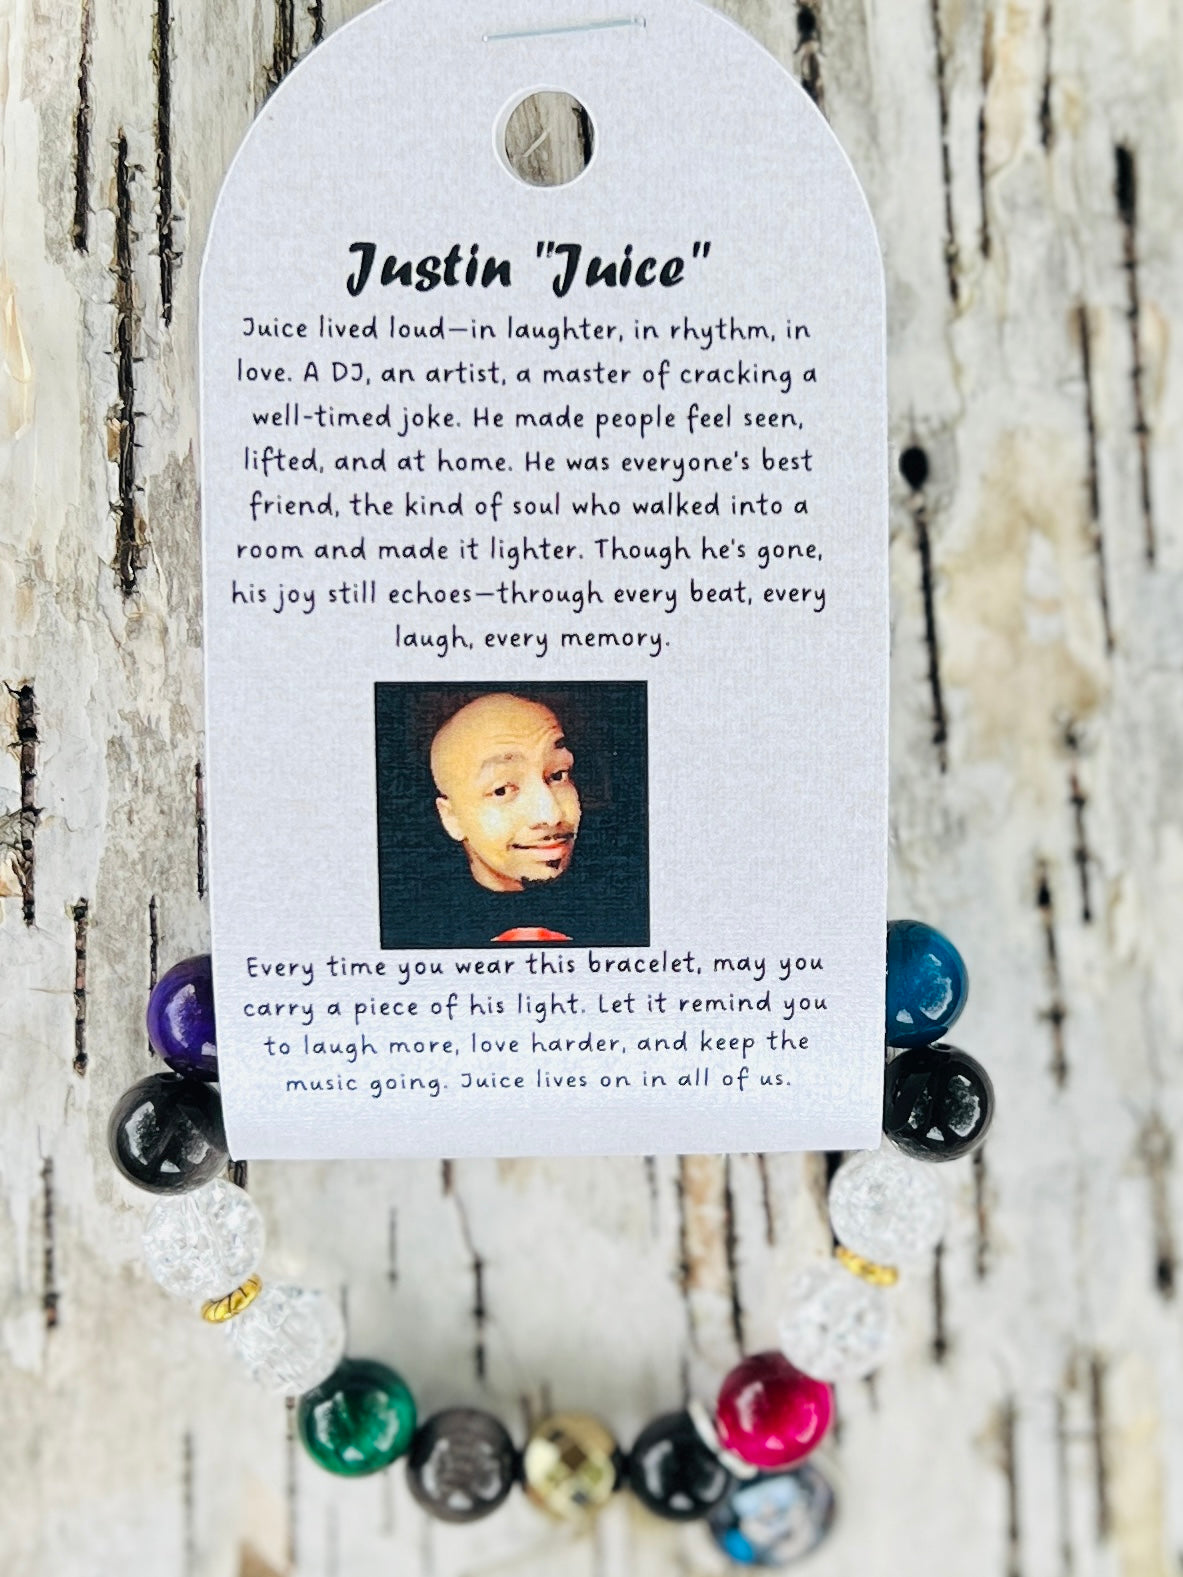 Justin "Juice"
Juice lived loud—in laughter, in rhythm, in
love. A DJ, an artist, a master of cracking a
well-timed joke. He made people feel seen,
lifted, and at home. He was everyone's best
friend, the kind of soul who walked into a
room and made it lighter. Though he's gone,
his joy still echoes—through every beat, every
laugh, every memory.
Every time you wear this bracelet, may you
carry a piece of his light. Let it remind you
to laugh more, love harder, and keep the
music going. Juice lives on in all of us.